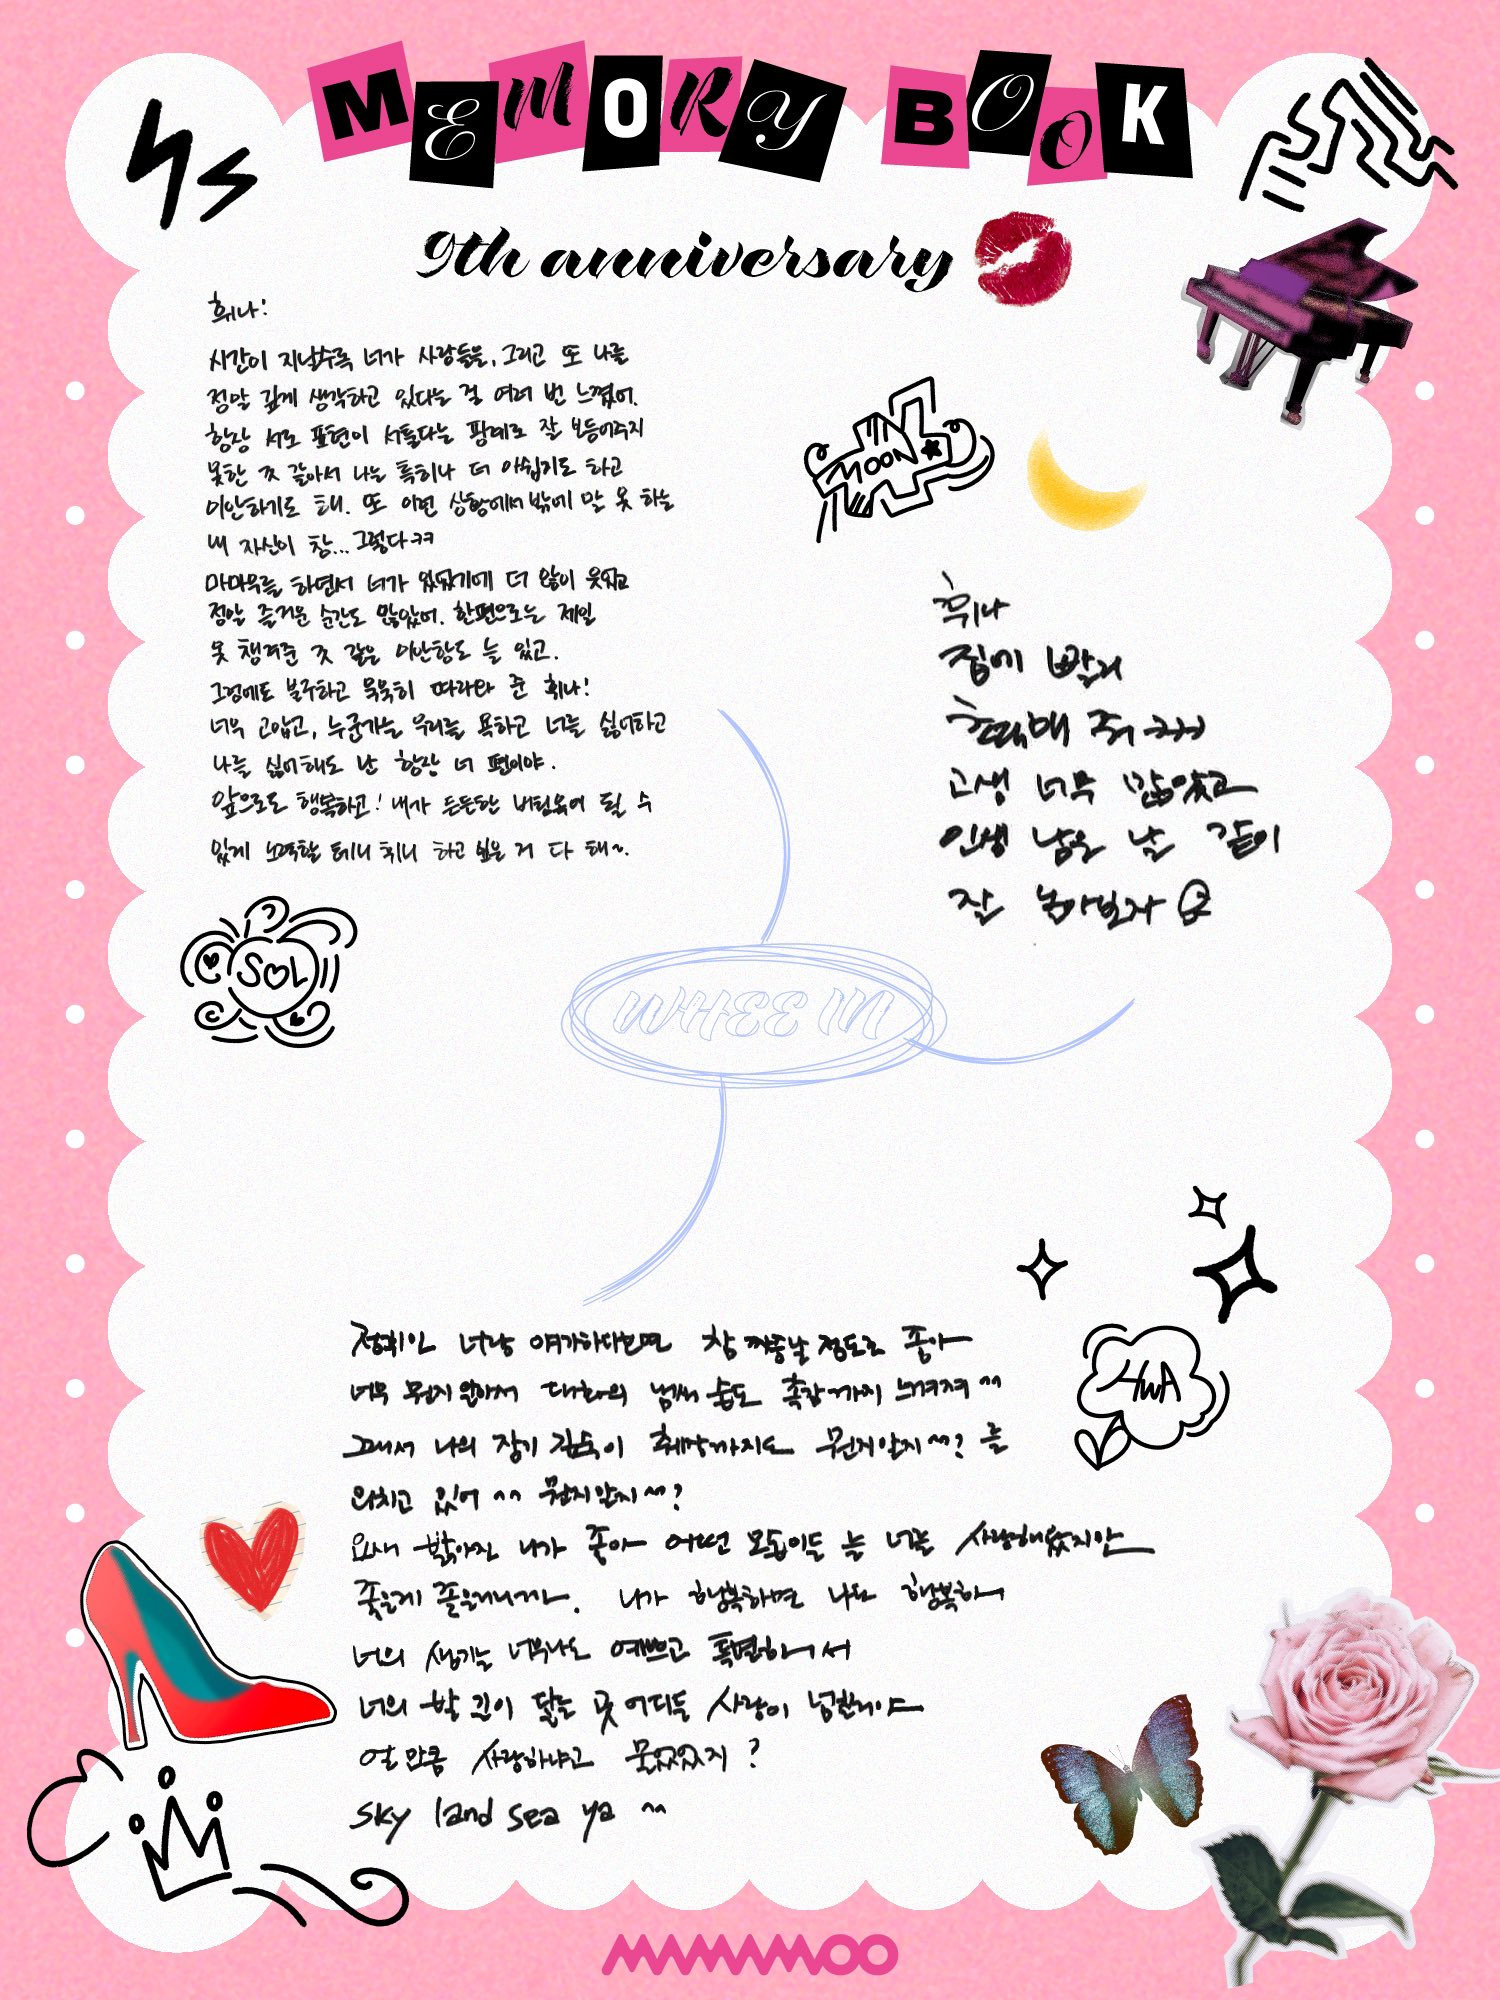 MEMORY BOOK
9th anniversary
휘나!
시간이 지날수록 너가 사람들을, 그리고 또 나를
정말 깊게 생각하고 있다는 걸 여러 번 느꼈어.
항상 서로 표현이 서툴다는 핑계로 잘 보듬어주지
못한 것 같아서 나는 특히나 더 아쉽기도 하고
미안하기도 해. 또 이런 상황에서 밖에 말 못 하는
내 자신이 참... 그렇다ㅋㅋ
마마무를 하면서 너가 있었기에 더 많이 웃었고
정말 즐거운 순간도 많았어. 한편으로는 제일
못 챙겨준 것 같은 미안함도 늘 있고.
그럼에도 불구하고 묵묵히 따라와 준 휘나!
너무 고맙고, 누군가는 우리를 욕하고 너를 싫어하고
나를 싫어해도 난 항상 너 편이야.
앞으로도 행복하고! 내가 든든한 버팀목이 될 수
있게 노력할 테니 휘니 하고 싶은 거 다 해~.
SOL
MOON
휘나
짐에 빨리
고생 너무 많았고
인생 남은 날 같이
잘 놀아보자
WHEE IN
정휘인 너랑 얘기하다보면 참 짜증날 정도로 좋아
너무 뭔지 알아서 대화의 냄새 습도 촉감까지 느껴져 ^^
그래서 나의 장기 깊숙이 췌장까지도 뭔지알지^^? 를
외치고 있어 ^^ 뭔지알지^^?
요새 밝아진 니가 좋아 어떤 모습이든 늘 너를 사랑해왔지만
좋은게 좋은거니까. 니가 행복하면 나도 행복해
너의 생기는 너무나도 예쁘고 특별해서
너의 발 길이 닿는 곳 어디든 사랑이 넘칠거야
얼만큼 사랑하냐고 물었었지?
sky land sea ya ^^
HWA
MAMAMOO